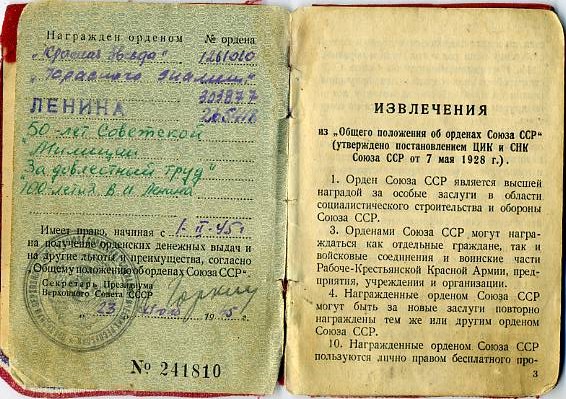 Награжден орденом № ордена
„Красная Звезда" 1261010
„Красного Знамени"
ЛЕНИНА
50 лет Советской
Милиции
„За доблестный труд"
100 летия В.И. Ленина
Имеет право, начиная с 1.II.45г
на получение орденских денежных выдач и
на другие льготы и преимущества, согласно
„Общему положению об орденах Союза ССР".
Секретарь Президиума
Верховного Совета СССР
Горкин
„23" 19 5 г.
№ 241810
ИЗВЛЕЧЕНИЯ
из „Общего положения об орденах Союза ССР"
(утверждено постановлением ЦИК и СНК
Союза ССР от 7 мая 1928 г.).
1. Орден Союза ССР является высшей
наградой за особые заслуги в области
социалистического строительства и обороны
Союза ССР.
3. Орденами Союза ССР могут награ-
ждаться как отдельные граждане, так и
войсковые соединения и воинские части
Рабоче-Крестьянской Красной Армии, пред-
приятия, учреждения и организации.
4. Награжденные орденом Союза ССР
могут быть за новые заслуги повторно
награждены тем же или другим орденом
Союза ССР.
10. Награжденные орденом Союза ССР
пользуются лично правом бесплатного про-
3